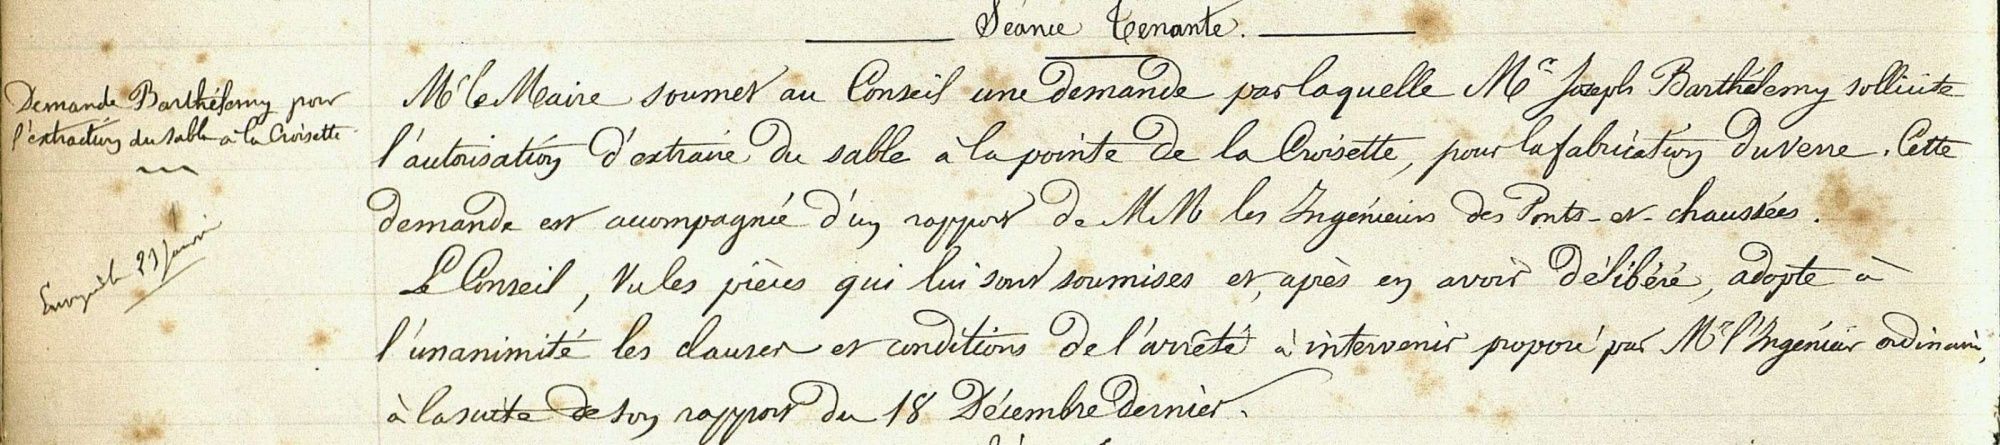 Séance Tenante.
Demande Barthélemy pour
l'extraction du sable à la Croisette
Envoyé le 21 Janvier
Mr le Maire soumet au Conseil une demande par laquelle Mr Joseph Barthélemy sollicite
l'autorisation d'extraire du sable à la pointe de la Croisette, pour la fabrication du verre. Cette
demande est accompagnée d'un rapport de MM les Ingénieurs des Ponts-et-chaussées.
Le Conseil, Vu les pièces qui lui sont soumises et, après en avoir délibéré, adopte à
l'unanimité les clauses et conditions de l'arrêté à intervenir proposé par Mr l'Ingénieur ordinaire,
à la suite de son rapport du 18 Décembre dernier.